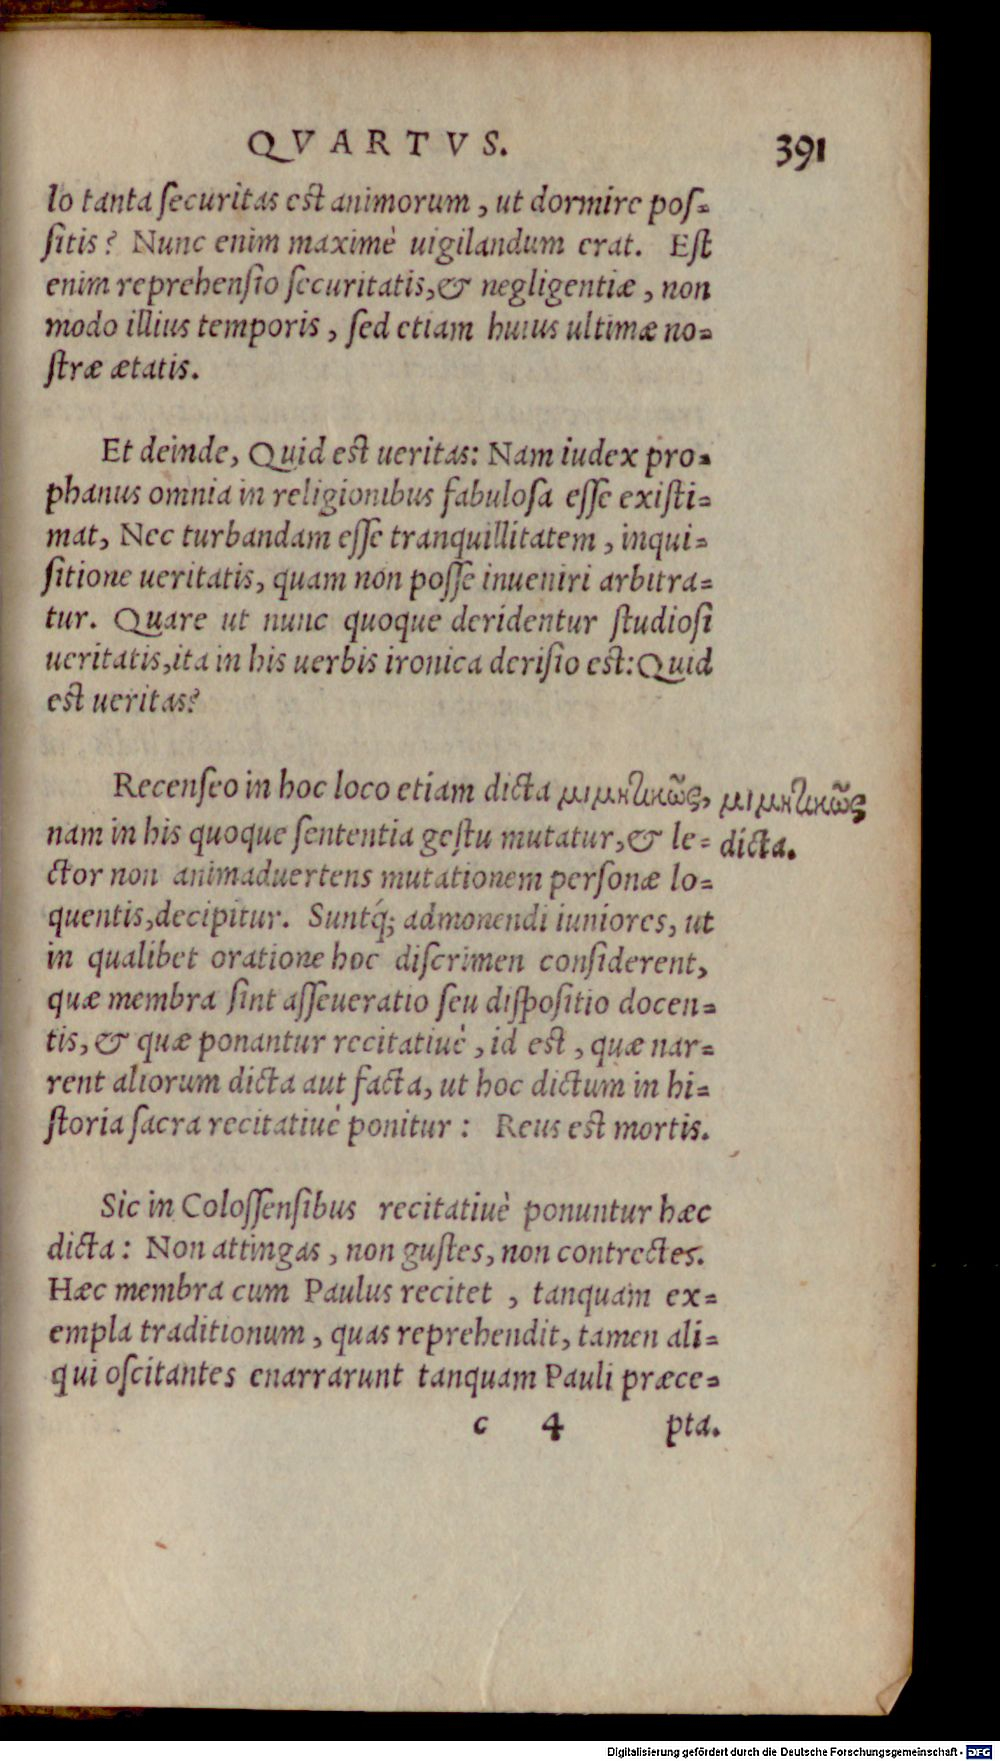 QVARTVS. 391
lo tanta ſecuritas est animorum, ut dormire poſ⸗
ſitis? Nunc enim maximè uigilandum erat. Eſt
enim reprehenſio ſecuritatis, & negligentiæ, non
modo illius temporis, ſed etiam huius ultimæ no⸗
ſtræ ætatis.
Et deinde, Quid eſt ueritas: Nam iudex pro⸗
phanus omnia in religionibus fabuloſa eſſe exiſti⸗
mat, Nec turbandam eſſe tranquillitatem, inqui⸗
ſitione ueritatis, quam non poſſe inueniri arbitra⸗
tur. Quare ut nunc quoque deridentur ſtudioſi
ueritatis, ita in his uerbis ironica deriſio eſt: Quid
eſt ueritas?
Recenſeo in hoc loco etiam dicta μιμητικῶς,
μιμητικῶς
nam in his quoque ſententia geſtu mutatur, & le⸗
dicta.
ctor non animaduertens mutationem perſonæ lo⸗
quentis, decipitur. Suntq́; admonendi iuniores, ut
in qualibet oratione hoc diſcrimen conſiderent,
quæ membra ſint aſſeueratio ſeu diſpoſitio docen⸗
tis, & quæ ponantur recitatiuè, id eſt, quæ nar⸗
rent aliorum dicta aut facta, ut hoc dictum in hi⸗
ſtoria ſacra recitatiuè ponitur: Reus eſt mortis.
Sic in Coloſſenſibus recitatiuè ponuntur hæc
dicta: Non attingas, non guſtes, non contrectes.
Hæc membra cum Paulus recitet, tanquam ex⸗
empla traditionum, quas reprehendit, tamen ali⸗
qui oſcitantes enarrarunt tanquam Pauli præce⸗
c 4 pta.
Digitalisierung gefördert durch die Deutsche Forschungsgemeinschaft - DFG